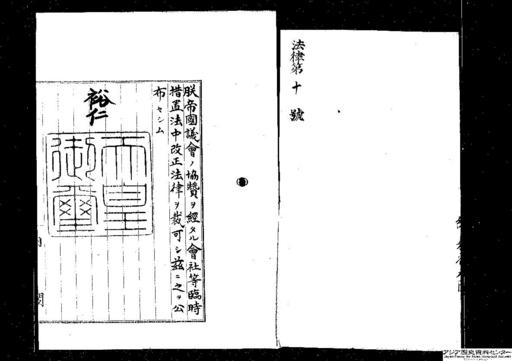 法律第十號
朕帝國議會ノ協贊ヲ經タル會社等臨時
措置法中改正法律ヲ裁可シ茲ニ之ヲ公
布セシム
裕仁
天皇
御璽
アジア歴史資料センター